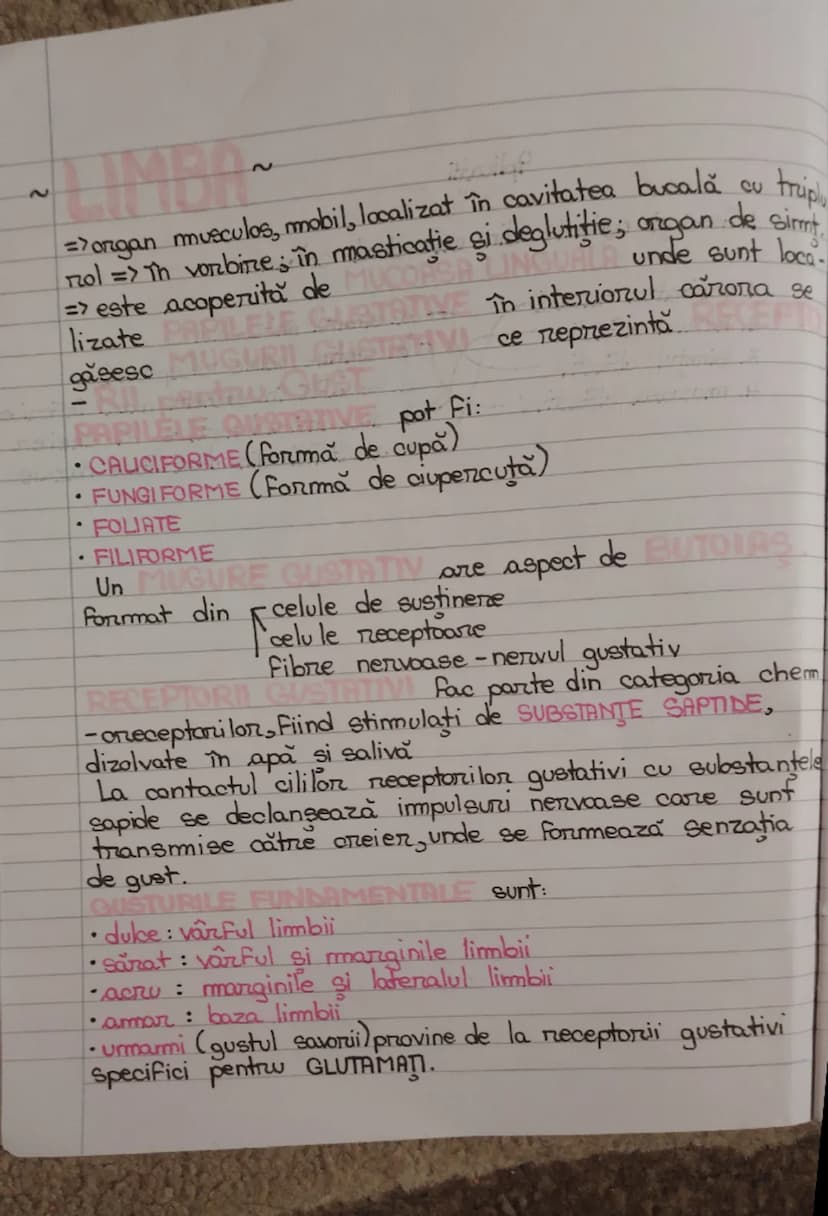 ~ LIMBA ~
=> organ musculos, mobil, localizat în cavitatea bucală cu triplu
rol => în vorbire; în masticație și deglutiție; organ de simț.
=> este acoperită de MUCOASA LINGUALĂ unde sunt loca-
lizate PAPILELE GUSTATIVE în interiorul cărora se
găsesc MUGURII GUSTATIVI ce reprezintă RECEPTO
- RII pentru GUST
PAPILELE GUSTATIVE pot fi:
• CALICIFORME (formă de cupă)
• FUNGIFORME (formă de ciupercuță)
• FOLIATE
• FILIFORME
Un MUGURE GUSTATIV are aspect de BUTOIAȘ
format din celule de susținere
celule receptoare
fibre nervoase - nervul gustativ
RECEPTORII GUSTATIVI fac parte din categoria chem
-oreceptorilor, fiind stimulați de SUBSTANȚE SAPTIDE,
dizolvate în apă și salivă
La contactul cililor receptorilor gustativi cu substanțele
sapide se declanșează impulsuri nervoase care sunt
transmise către creier, unde se formează senzația
de gust.
GUSTURILE FUNDAMENTALE sunt:
• dulce: vârful limbii
• sărat: vârful și marginile limbii
• acru: marginile și lateralul limbii
• amar: baza limbii
• umami (gustul savorii) provine de la receptorii gustativi
specifici pentru GLUTAMAȚI.